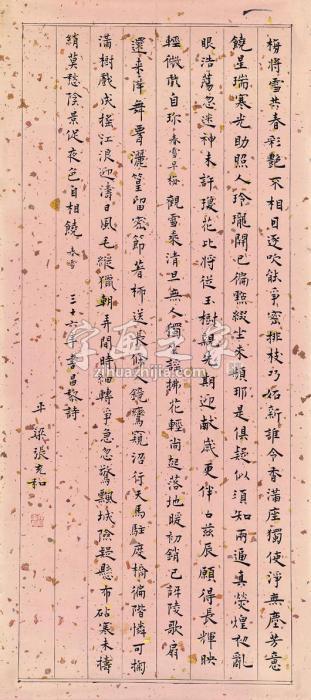 梅將雪共春彩艷不相因逐吹能爭密排枝巧妬新誰令香滿座獨使淨無塵芳意
饒呈瑞寒光助照人玲瓏開已徧點綴坐來頻那是俱疑似須知兩逼真熒煌初亂
眼浩蕩忽迷神未許瓊花比將從玉樹親先期迎献歲更伴占茲辰願得長輝映
輕微敢自珍 春雪早梅 觀雪乘清旦無人獨坐謠拂花輕尚起落地暖初銷已訝陵歌扇
還來伴舞灑篁留密節著柳送長條入鏡鸞窺沼行天馬駐度橋徧階憐可掬
滿樹戲成搖江浪迎濤日風毛縱獵朝弄閒時細轉爭急忽驚飄城險疑懸布砧寒未擣
綃莫愁陰景促夜色自相饒 春雪 三十六年書昌黎詩
平梁張充和
字画之家
zihuazhijia.com